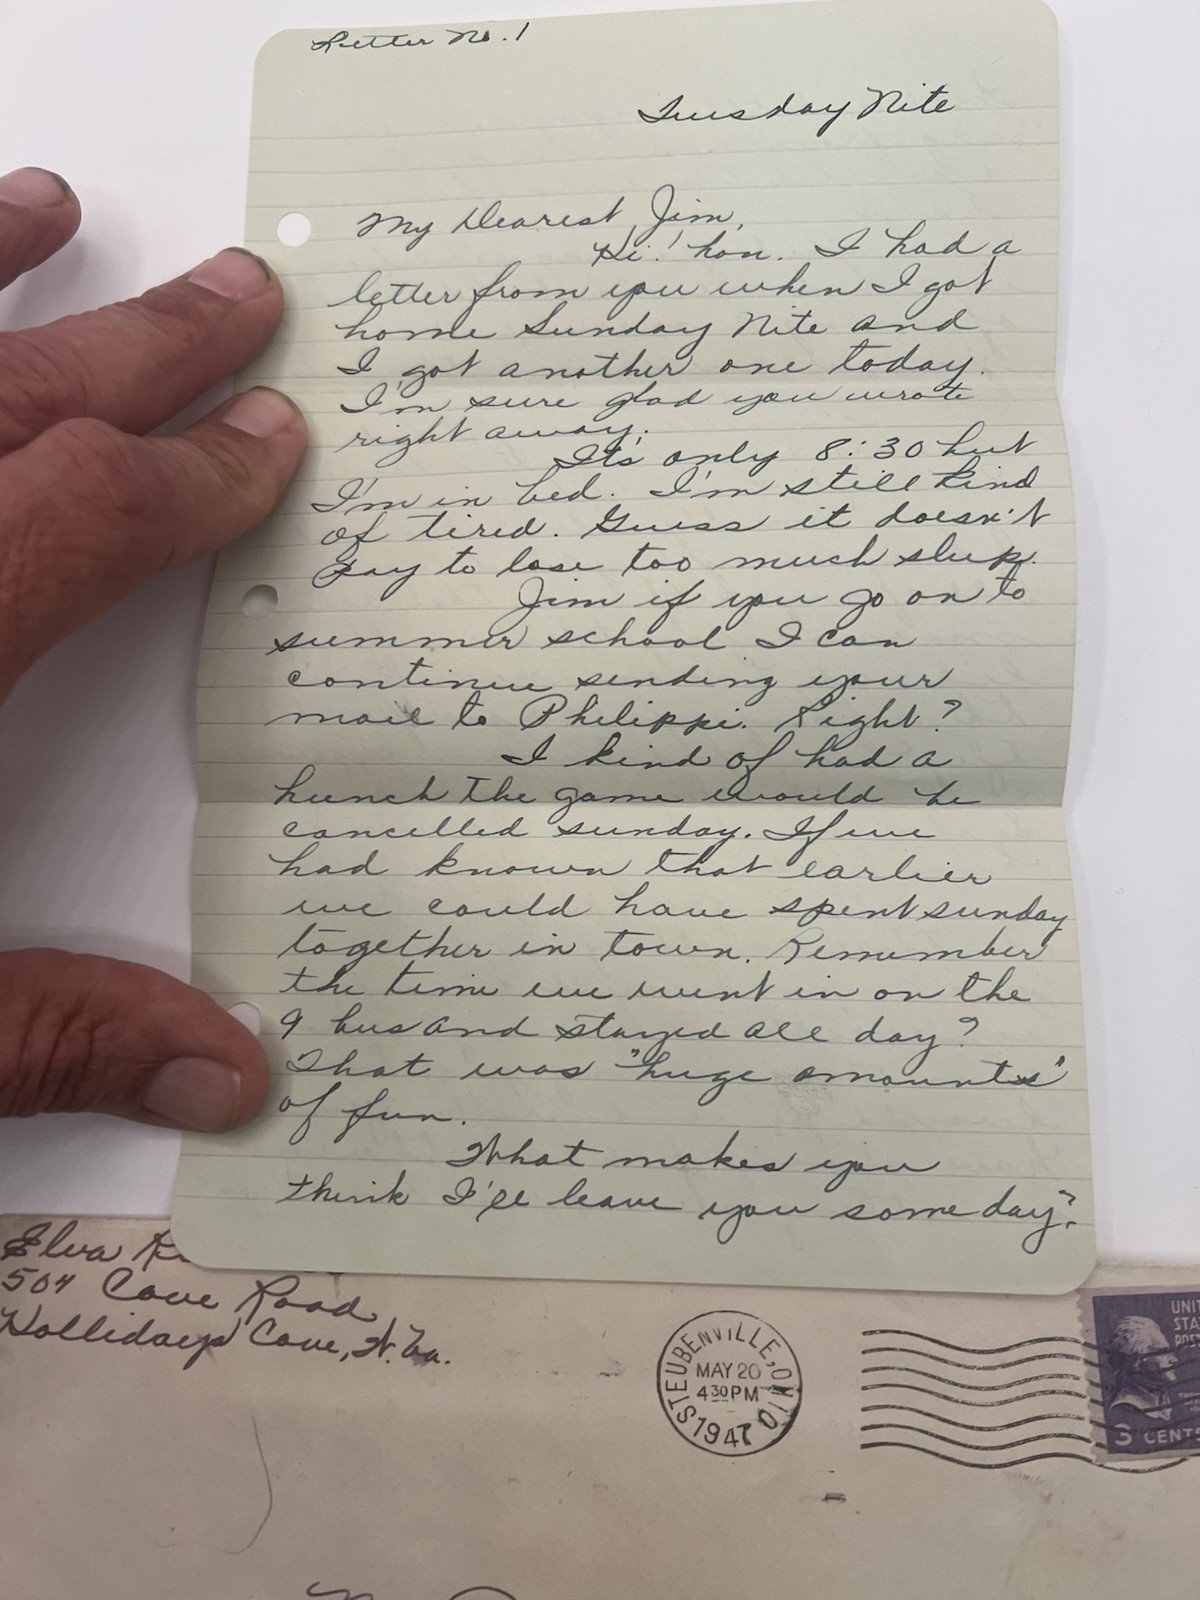 Letter No. 1
Tuesday Nite
My Dearest Jim,
Hi! hon. I had a
letter from you when I got
home Sunday Nite and
I got another one today.
I'm sure glad you wrote
right away.
Its only 8:30 but
I'm in bed. I'm still kind
of tired. Guess it doesn't
pay to lose too much sleep.
Jim if you go on to
summer school I can
continue sending your
mail to Philippi. Right?
I kind of had a
hunch the game would be
cancelled sunday. If we
had known that earlier
we could have spent sunday
together in town. Remember
the time we went in on the
9 bus and stayed all day?
That was "huge amounts"
of fun.
What makes you
think I'll leave you some day?
Elva
504 Cove Road
Hollidays Cove, W. Va.
STEUBENVILLE, OHIO
MAY 20
4 30 PM
1947
UNIT
STA
POS
3 CENTS